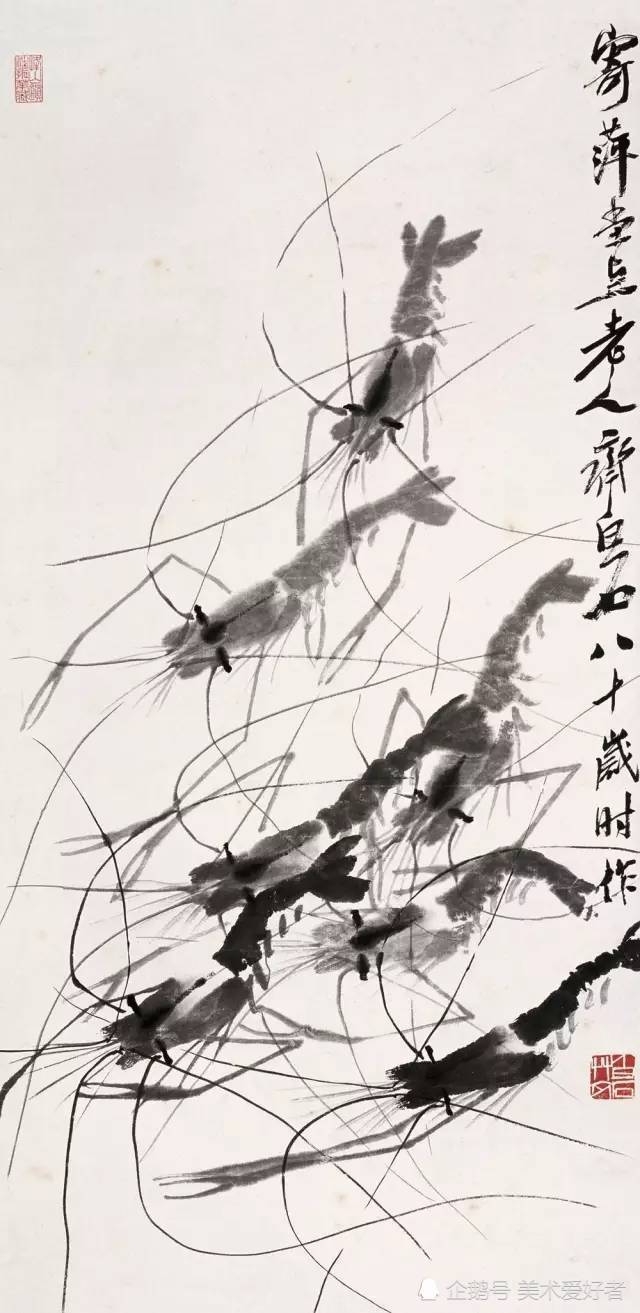 寄萍堂上老人齊白石八十歲时作
企鹅号 美术爱好者